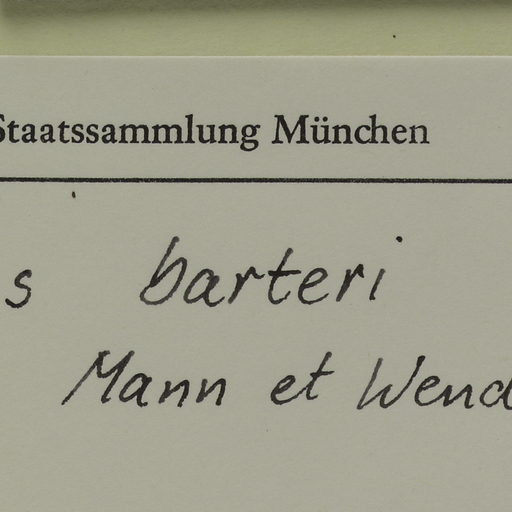 Staatssammlung München
s barteri
Mann et Wend